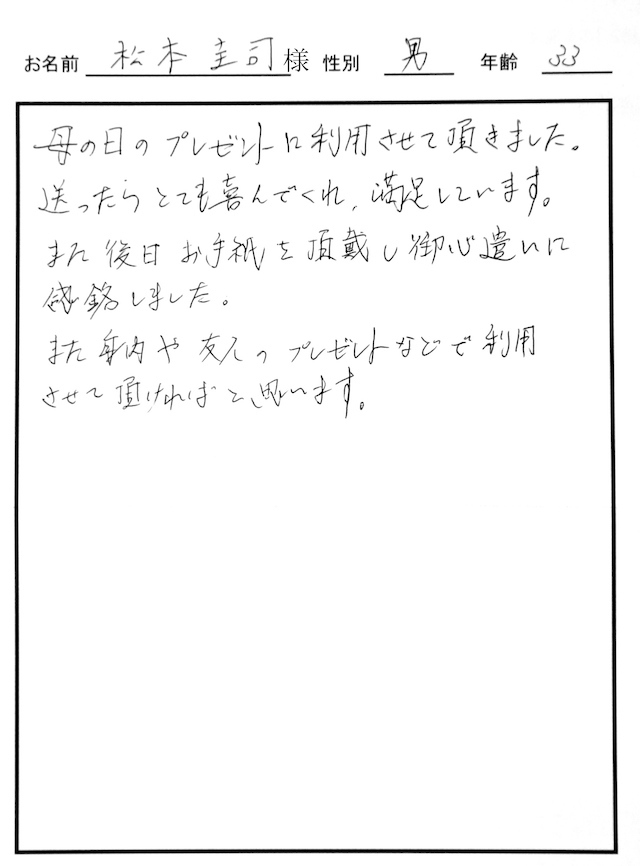 お名前 松本圭司様 性別 男 年齢 33
母の日のプレゼントに利用させて頂きました。
送ったらとても喜んでくれ、満足しています。
また後日お手紙を頂戴し御心遣いに
感銘しました。
また身内や友人のプレゼントなどで利用
させて頂ければと思います。